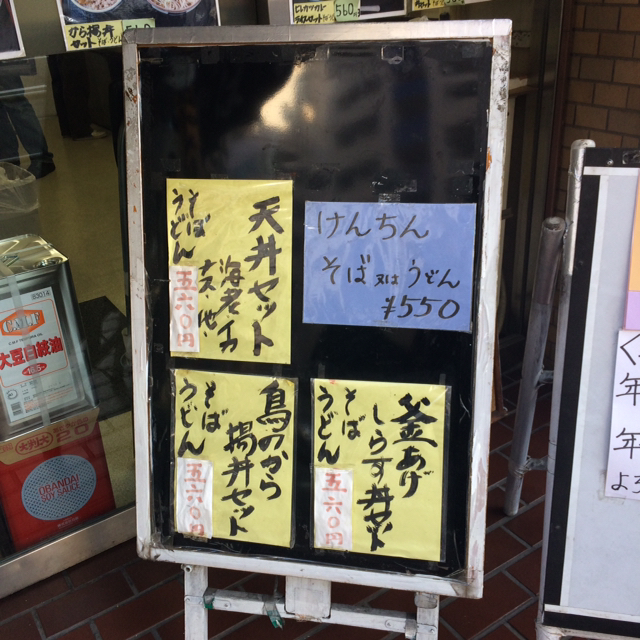 から揚丼
セット
560
天丼セット
海老イカ
ナス他
そば
うどん
五六〇円
けんちん
そば又はうどん
¥550
鳥のから
揚丼セット
そば
うどん
五六〇円
釜あげ
しらす丼セット
そば
うどん
五六〇円
大豆白絞油
ORANDA
く
年
年
よろ